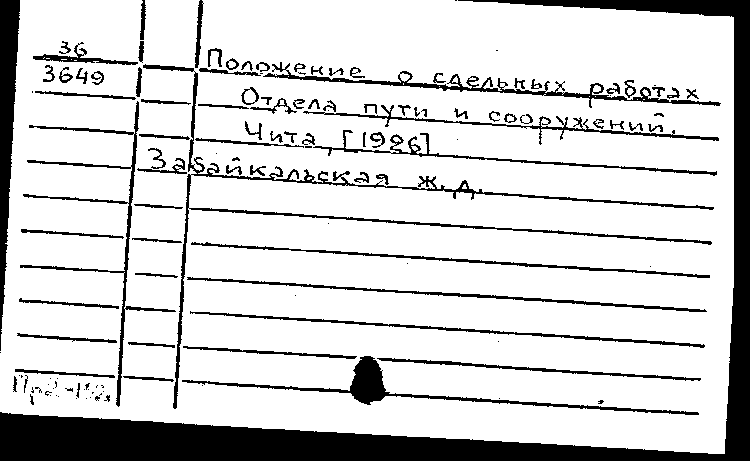 36
3649
Положение о сдельных работах
Отдела пути и сооружений.
Чита, [1926]
Забайкальская ж.д.